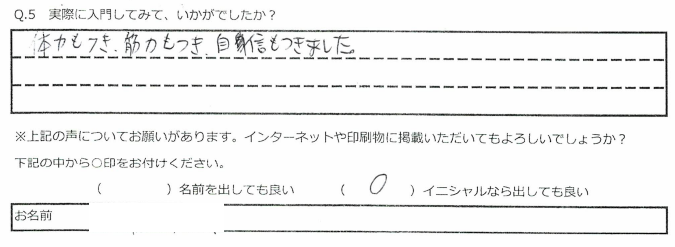 Q.5 実際に入門してみて、いかがでしたか？
体力もつき、筋力もつき、自信もつきました。
※上記の声についてお願いがあります。インターネットや印刷物に掲載いただいてもよろしいでしょうか？
下記の中から○印をお付けください。
（　　　　）名前を出しても良い　（　○　）イニシャルなら出しても良い
お名前